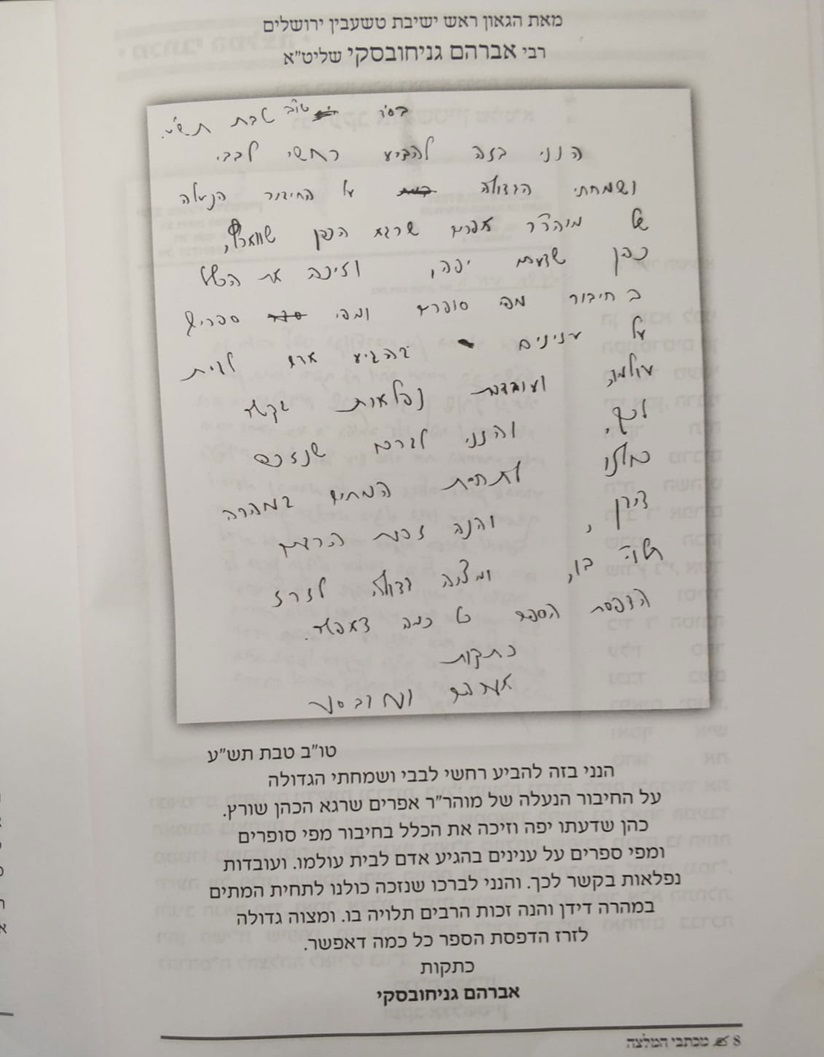 מאת הגאון ראש ישיבת טשעבין ירושלים
רבי אברהם גניחובסקי שליט"א
בס"ד טו"ב טבת תש"ע
הנני בזה להביע רחשי לבבי
ושמחתי הגדולה על החיבור הנעלה
של מוהר"ר אפרים שרגא הכהן שווארץ,
כהן שדעתו יפה, וזיכה את הכלל
בחיבור מפי סופרים ומפי ספרים
על ענינים בהגיע אדם לבית
עולמו, ועובדות נפלאות בקשר
לכך, והנני לברכו שנזכה
כולנו לתחית המתים במהרה
דידן, והנה זכות הרבים
תלויה בו, ומצוה גדולה לזרז
הדפסת הספר כל כמה דאפשר.
כתקות
אברהם גניחובסקי
טו"ב טבת תש"ע
הנני בזה להביע רחשי לבבי ושמחתי הגדולה
על החיבור הנעלה של מוהר"ר אפרים שרגא הכהן שורץ.
כהן שדעתו יפה וזיכה את הכלל בחיבור מפי סופרים
ומפי ספרים על ענינים בהגיע אדם לבית עולמו. ועובדות
נפלאות בקשר לכך. והנני לברכו שנזכה כולנו לתחית המתים
במהרה דידן והנה זכות הרבים תלויה בו. ומצוה גדולה
לזרז הדפסת הספר כל כמה דאפשר.
כתקות
אברהם גניחובסקי
8 מכתבי המלצה